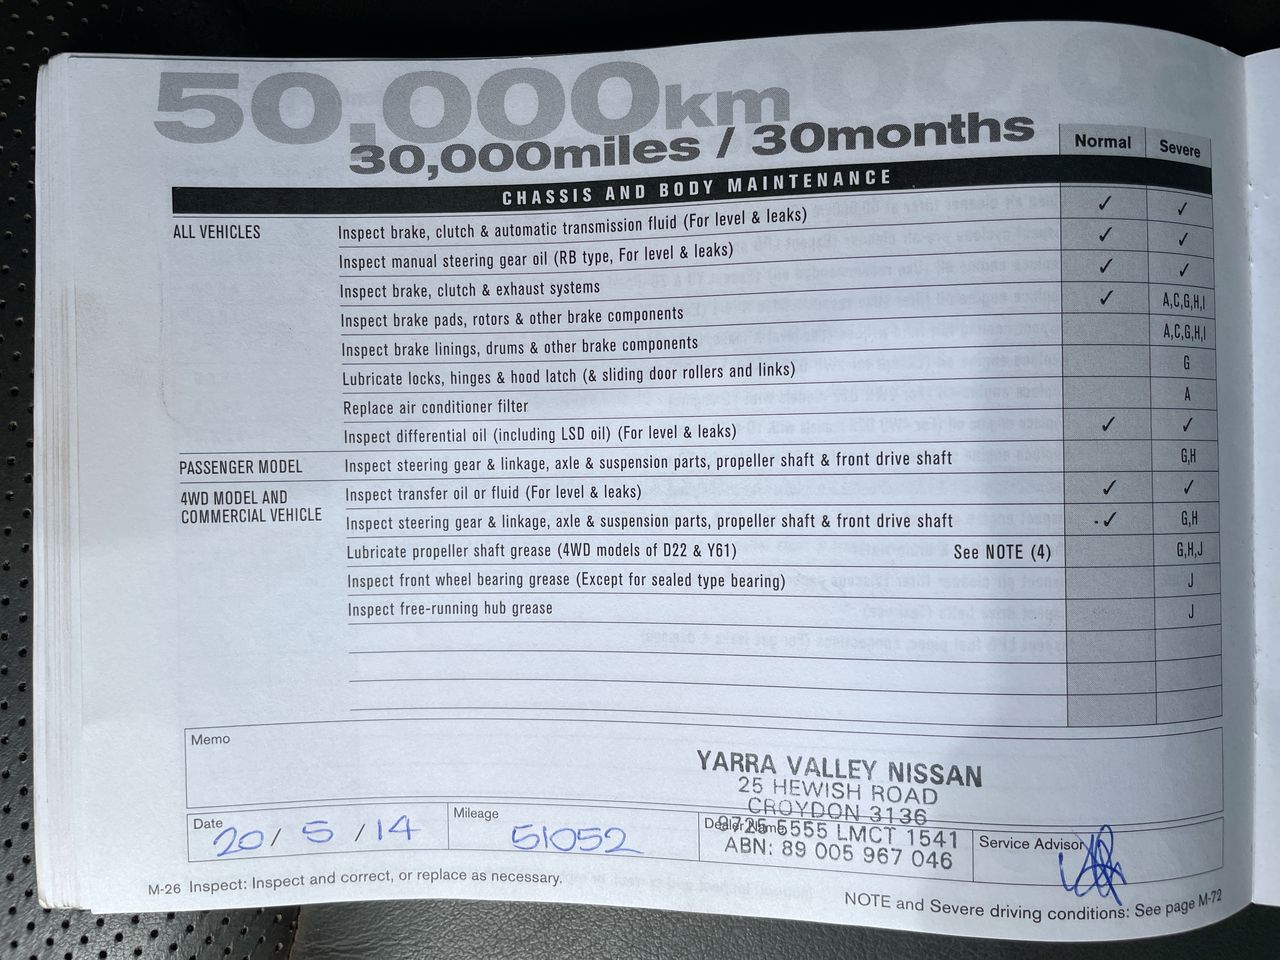 50,000km
30,000miles / 30months
Normal Severe
CHASSIS AND BODY MAINTENANCE
ALL VEHICLES Inspect brake, clutch & automatic transmission fluid (For level & leaks) ✓ ✓
Inspect manual steering gear oil (RB type, For level & leaks) ✓ ✓
Inspect brake, clutch & exhaust systems ✓ ✓
Inspect brake pads, rotors & other brake components ✓ A,C,G,H,I
Inspect brake linings, drums & other brake components A,C,G,H,I
Lubricate locks, hinges & hood latch (& sliding door rollers and links) G
Replace air conditioner filter A
Inspect differential oil (including LSD oil) (For level & leaks) ✓ ✓
PASSENGER MODEL Inspect steering gear & linkage, axle & suspension parts, propeller shaft & front drive shaft G,H
4WD MODEL AND Inspect transfer oil or fluid (For level & leaks) ✓ ✓
COMMERCIAL VEHICLE Inspect steering gear & linkage, axle & suspension parts, propeller shaft & front drive shaft ✓ G,H
Lubricate propeller shaft grease (4WD models of D22 & Y61) See NOTE (4) G,H,J
Inspect front wheel bearing grease (Except for sealed type bearing) J
Inspect free-running hub grease J
Memo
YARRA VALLEY NISSAN
25 HEWISH ROAD
CROYDON 3136
9725 5555 LMCT 1541
ABN: 89 005 967 046
Date 20/5/14
Mileage 51052
Dealer Name
Service Advisor
M-26 Inspect: Inspect and correct, or replace as necessary.
NOTE and Severe driving conditions: See page M-72